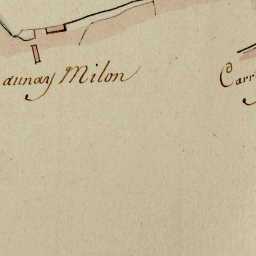 aunay Milon
Carr